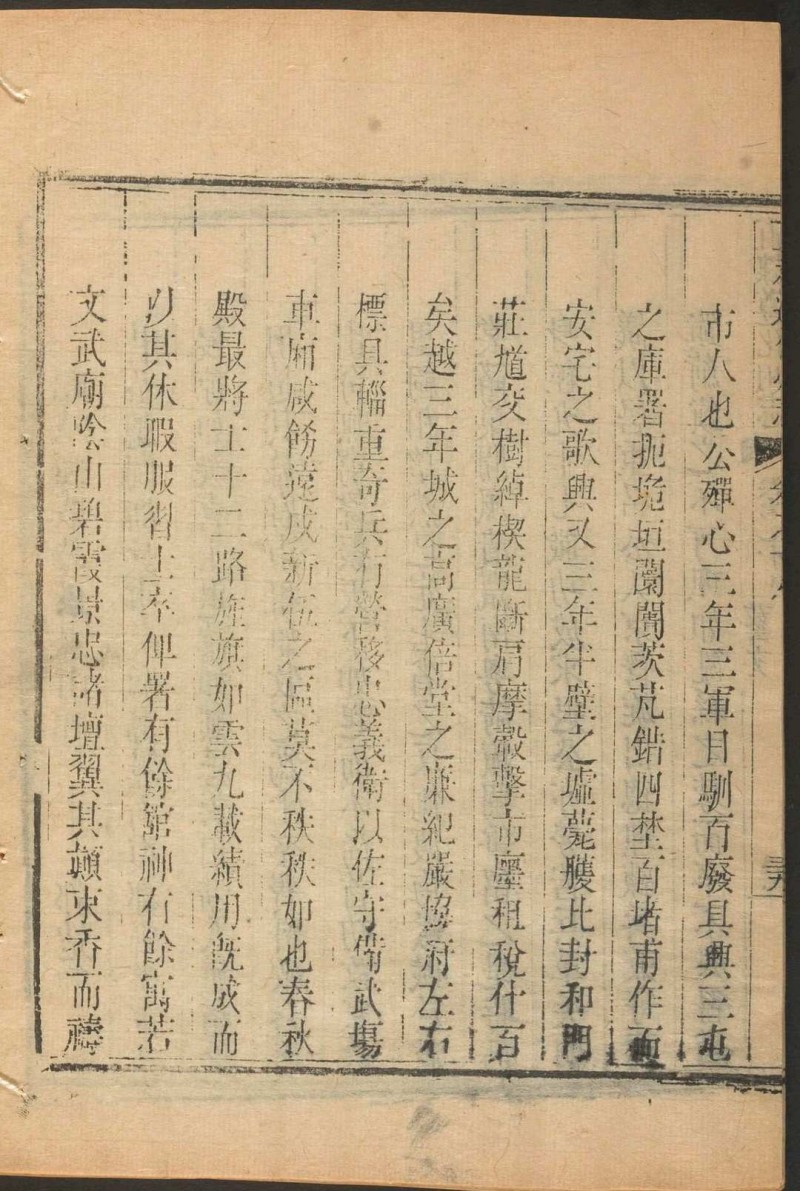 市人也公殫心三年三軍日馴百廢具興三屯
之庫署扼垝垣闤闠茨芃錯四埜百堵甫作而
安宅之歌興又三年半壁之墟薨䑾比封和門
莊馗交樹綽楔龍斷肩摩轂擊市廛租稅什百
矣越三年城之高廣倍堂之廉紀嚴協府左右
標具輜重奇兵有營移忠義衛以佐守備武塲
車廂咸飭遠戍新伍之區莫不秩秩如也春秋
殿最將士十二路旌旗如雲九載績用旣成而
以其休暇服習士卒俾署有餘舘神有餘寓若
文武廟陰山碧霞景忠諸壇翼其顛束香而禱